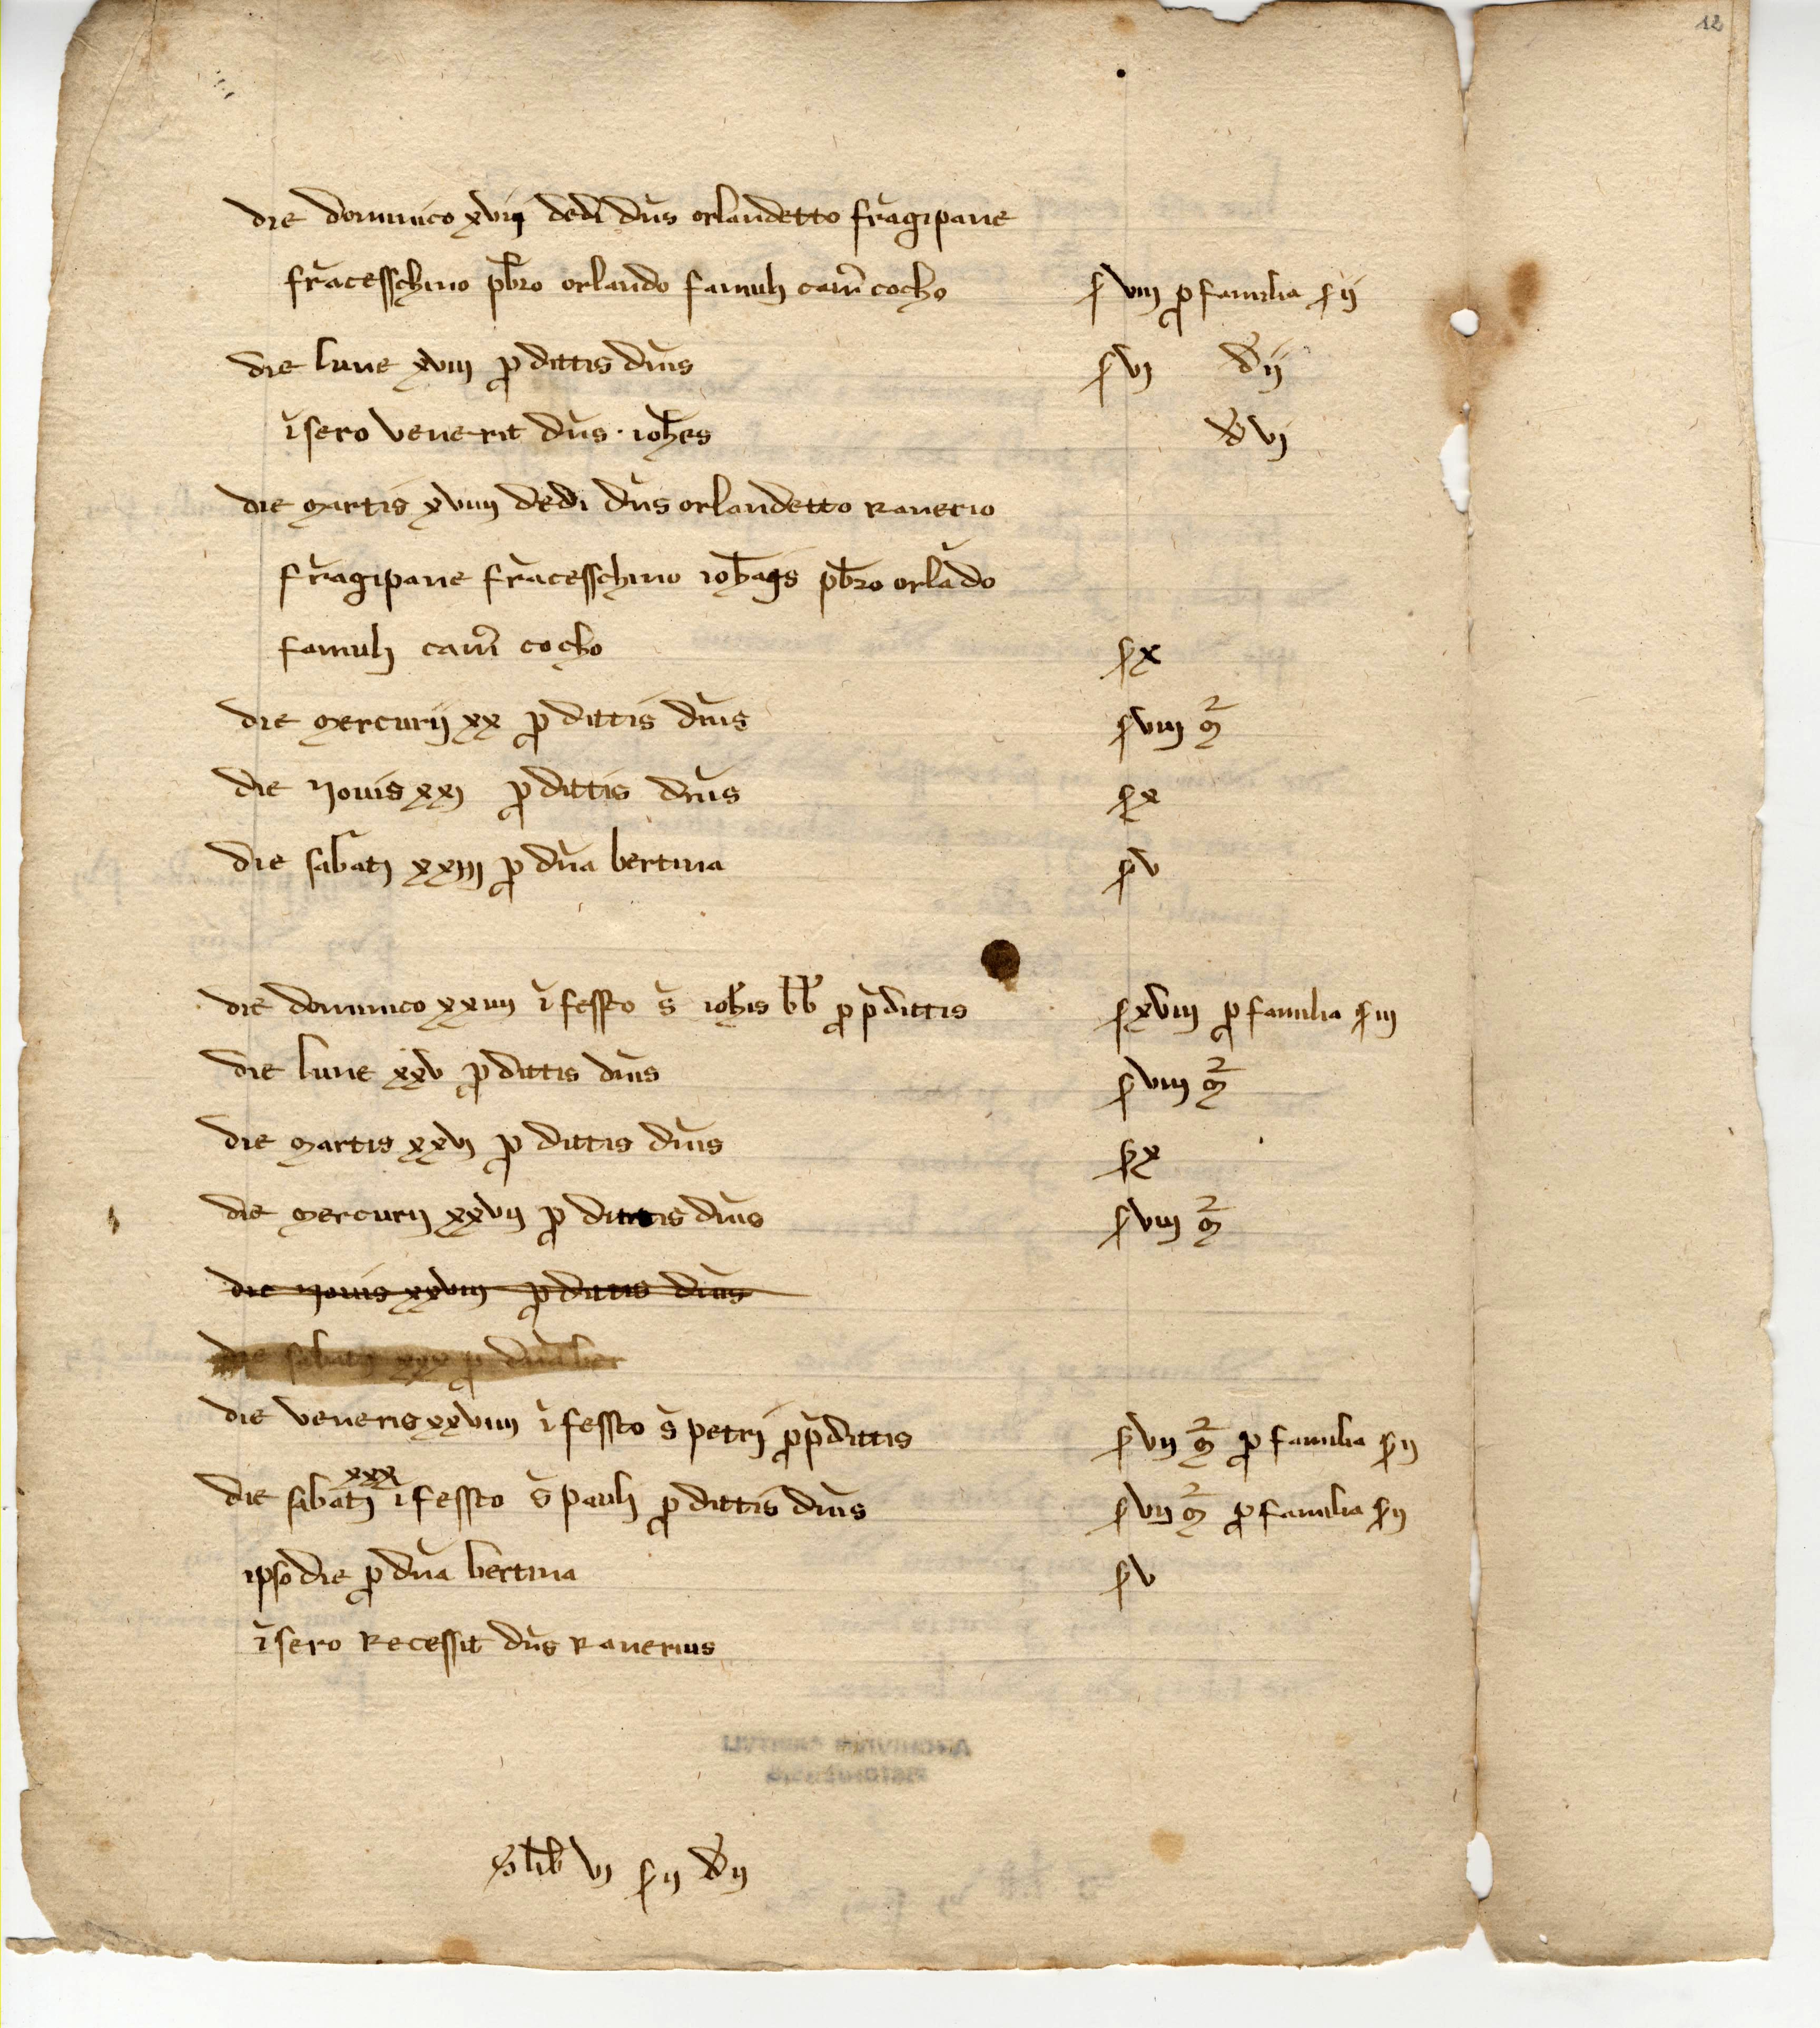 12
die dominico xvij dedi dn̄s orlandetto frāgipane
frācesschino pb̄ro orlando famulj cam̄ cocho s viij p familia s ij
die lune xviij p dittis dn̄is s vj d ij
ī sero venerit dn̄s ioh̄es d vj
die martis xviiij dedi dn̄s orlandetto Ranerio
frāgipane frācesschino pb̄ro orlādo
famulj cam̄ cocho s x
die mercurij xx p dittis dn̄is s viij
die Jovis xxj p dittis dn̄is s x
die sabatj xxiij p dn̄a bertina s v
die dominico xxiiij ī fessto s̄ ioh̄is bb̄ p p̄dittis s xviij p familia s iij
die lune xxv p dittis dn̄is s viij
die martis xxvj p dittis dn̄is s x
die mercurij xxvij p dittis dn̄is s viij
die Jovis xxviij p dittis dn̄is
die sabatj xxx p dn̄a ber
die veneris xxviiij ī fessto s̄ petrj p p̄dittis s vij p familia s ij
die sabatj xxx ī fessto s̄ paulj p dittis dn̄is s vij p familia s ij
ipso die p dn̄a bertina s v
ī sero Recessit dn̄s Ranerius
lib̄ vj s ij d ij